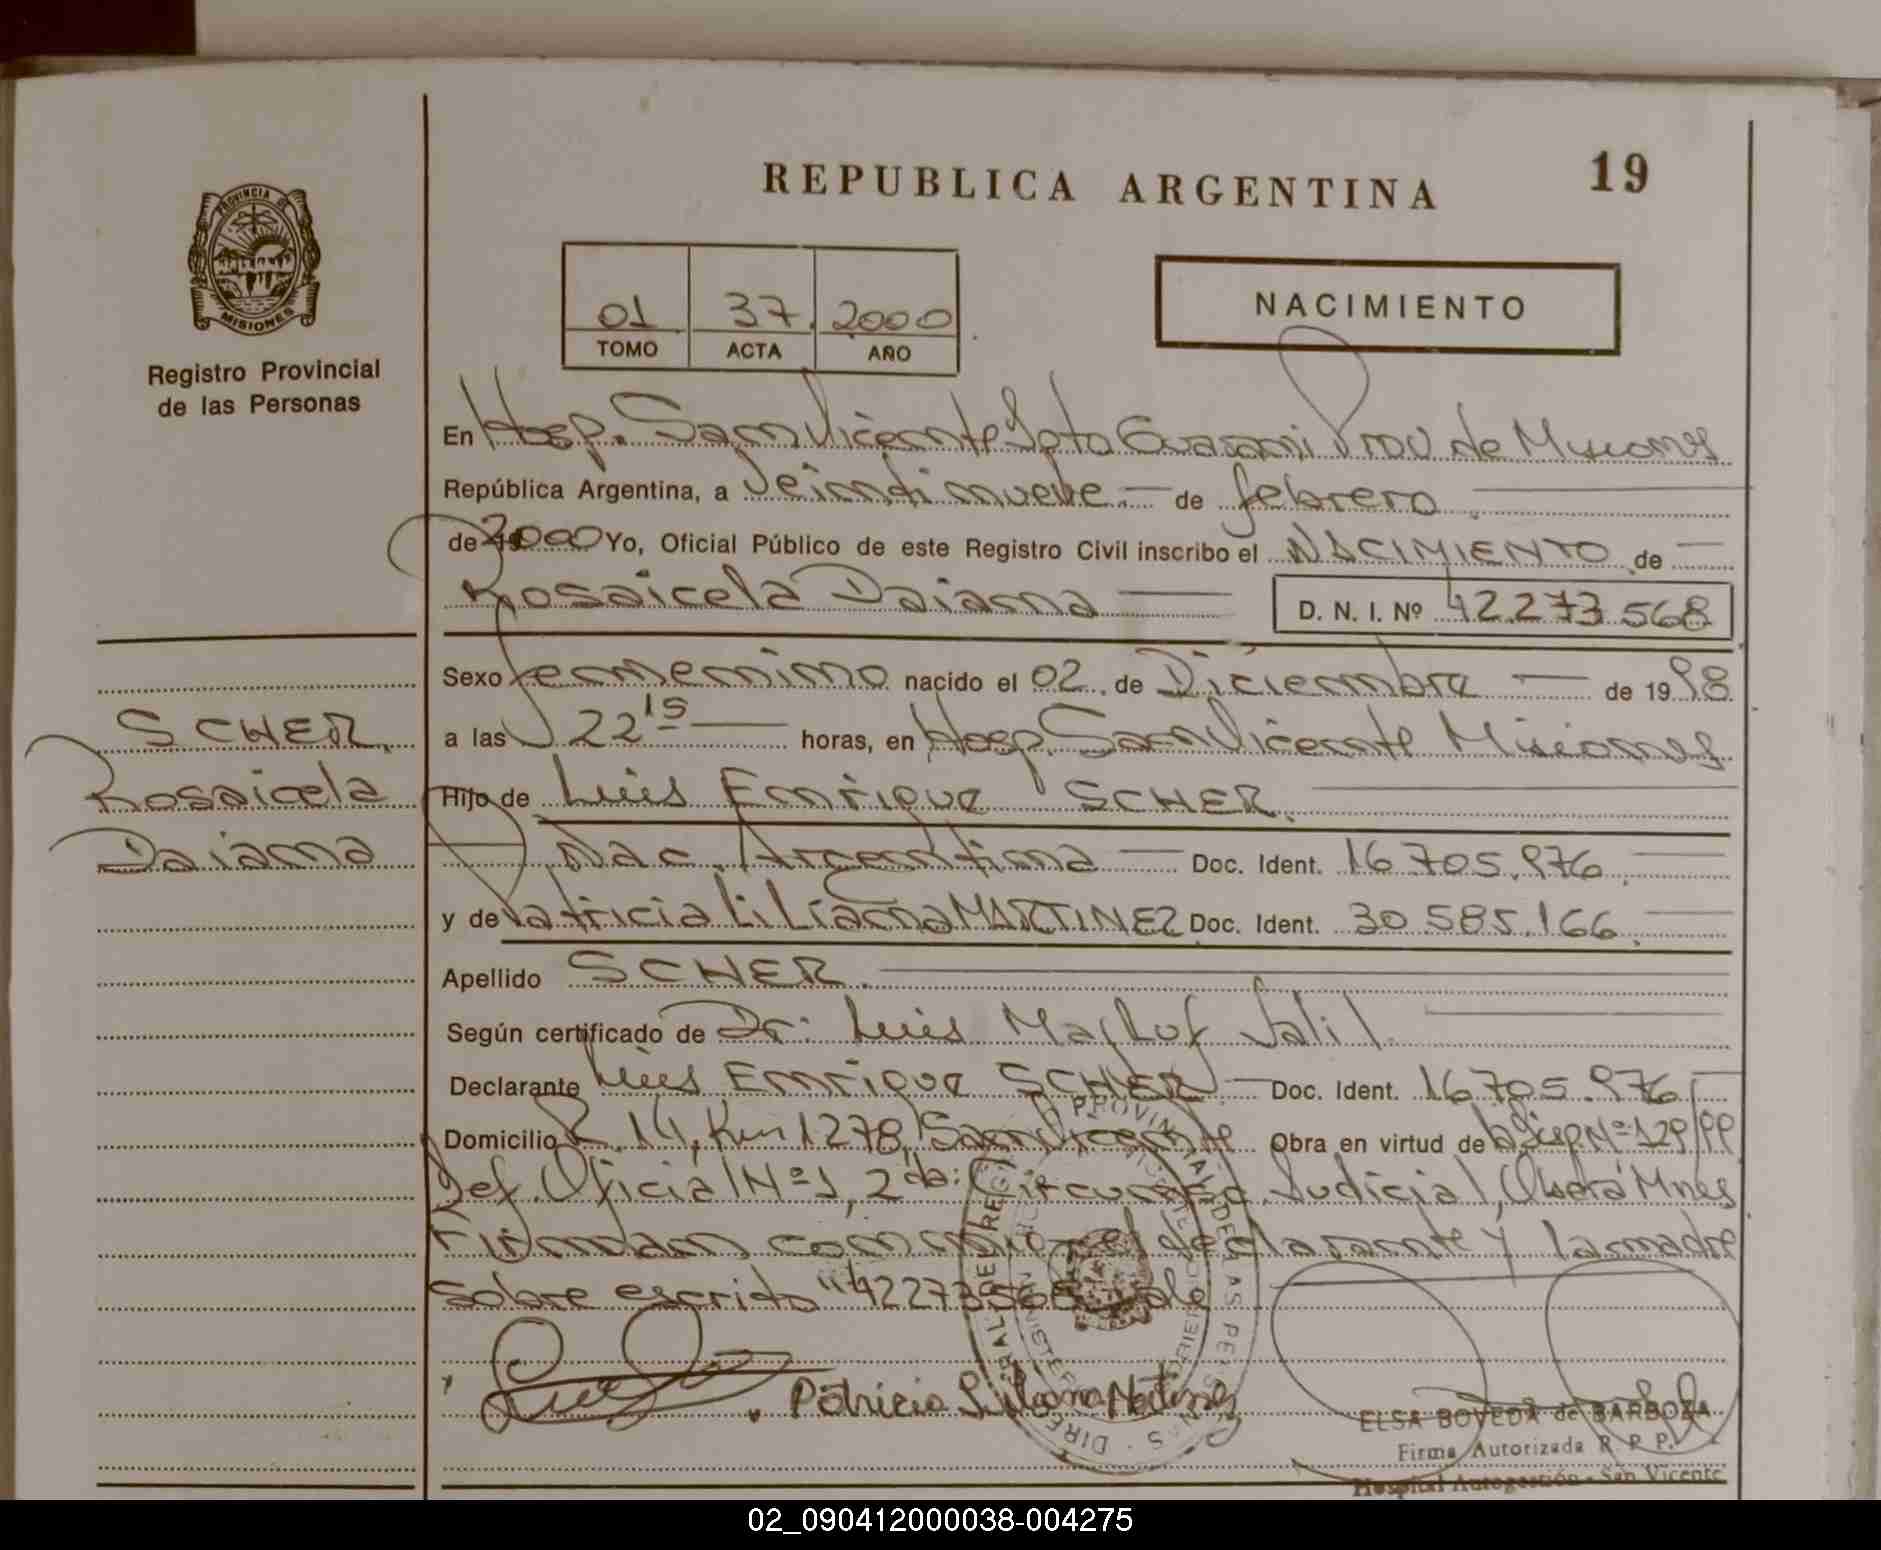 REPUBLICA ARGENTINA
19
PROVINCIA DE
MISIONES
Registro Provincial
de las Personas
01 37 2000
TOMO ACTA AÑO
NACIMIENTO
En Hosp. San Vicente Dpto Guarani Prov de Misiones
República Argentina, a Veintinueve de febrero
de 2000 Yo, Oficial Público de este Registro Civil inscribo el NACIMIENTO de
Rosaicela Daiana
D. N. I. Nº 42.273.568
Sexo femenino nacido el 02 de Diciembre de 1998
a las 22 15 horas, en Hosp. San Vicente Misiones
Hijo de Luis Enrique SCHER
Nac. Argentina Doc. Ident. 16.705.976
y de Patricia Liliana MARTINEZ Doc. Ident. 30.585.166
Apellido SCHER
Según certificado de Dr: Luis Jalil
Declarante Luis Enrique SCHER Doc. Ident. 16.705.976
Domicilio R. 14, Km 1278, San Vicente Obra en virtud de Nº 129/99
Def. Oficial Nº 1, 2da: Circunsc. Judicial, Oberá Mnes
Firman conmigo el declarante y la madre
sobre escrito "42273568" vale
SCHER
Rosaicela
Daiana
Patricia Liliana Martinez
ELSA BOVEDA de BARBOZA
Firma Autorizada R. P. P.
Hospital Autogestión - San Vicente
02_090412000038-004275